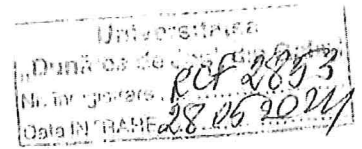 Universitatea
„Dunărea de Jos" din Galați
Nr. înregistrare RCF 2853
Data INTRARE 28 05 2021